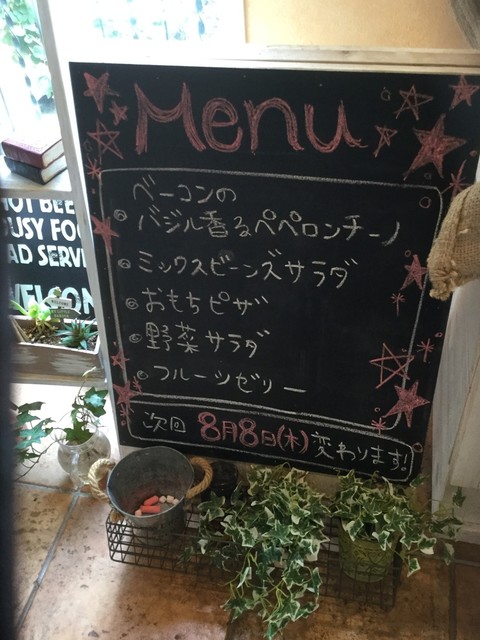 Menu
ベーコンの
バジル香るペペロンチーノ
ミックスビーンズサラダ
おもちピザ
野菜サラダ
フルーツゼリー
次回 8月8日(木)変わります!